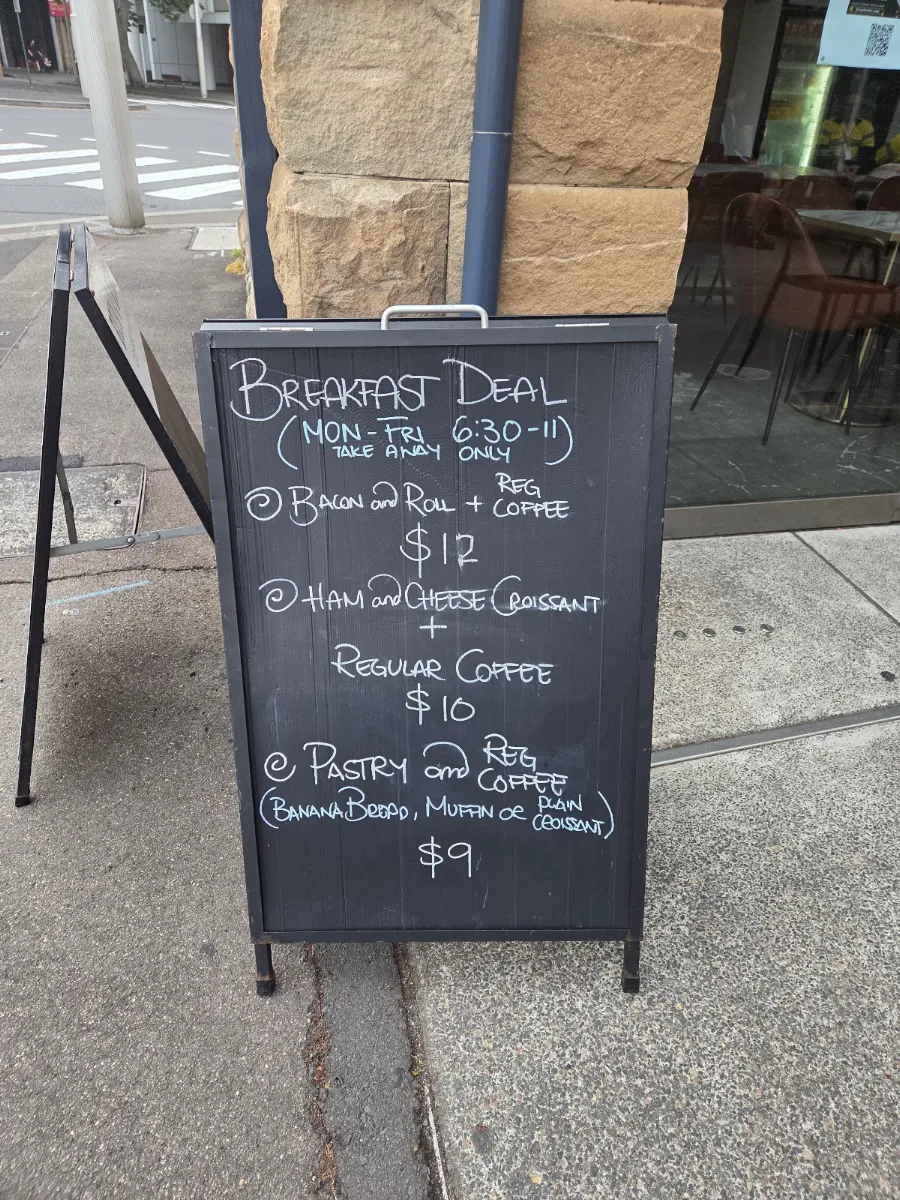 BREAKFAST DEAL
(MON-FRI 6:30-11)
TAKE AWAY ONLY
BACON and ROLL + REG COFFEE
$12
HAM and CHEESE CROISSANT
+
REGULAR COFFEE
$10
PASTRY and REG COFFEE
(BANANA BREAD, MUFFIN OR PLAIN CROISSANT)
$9